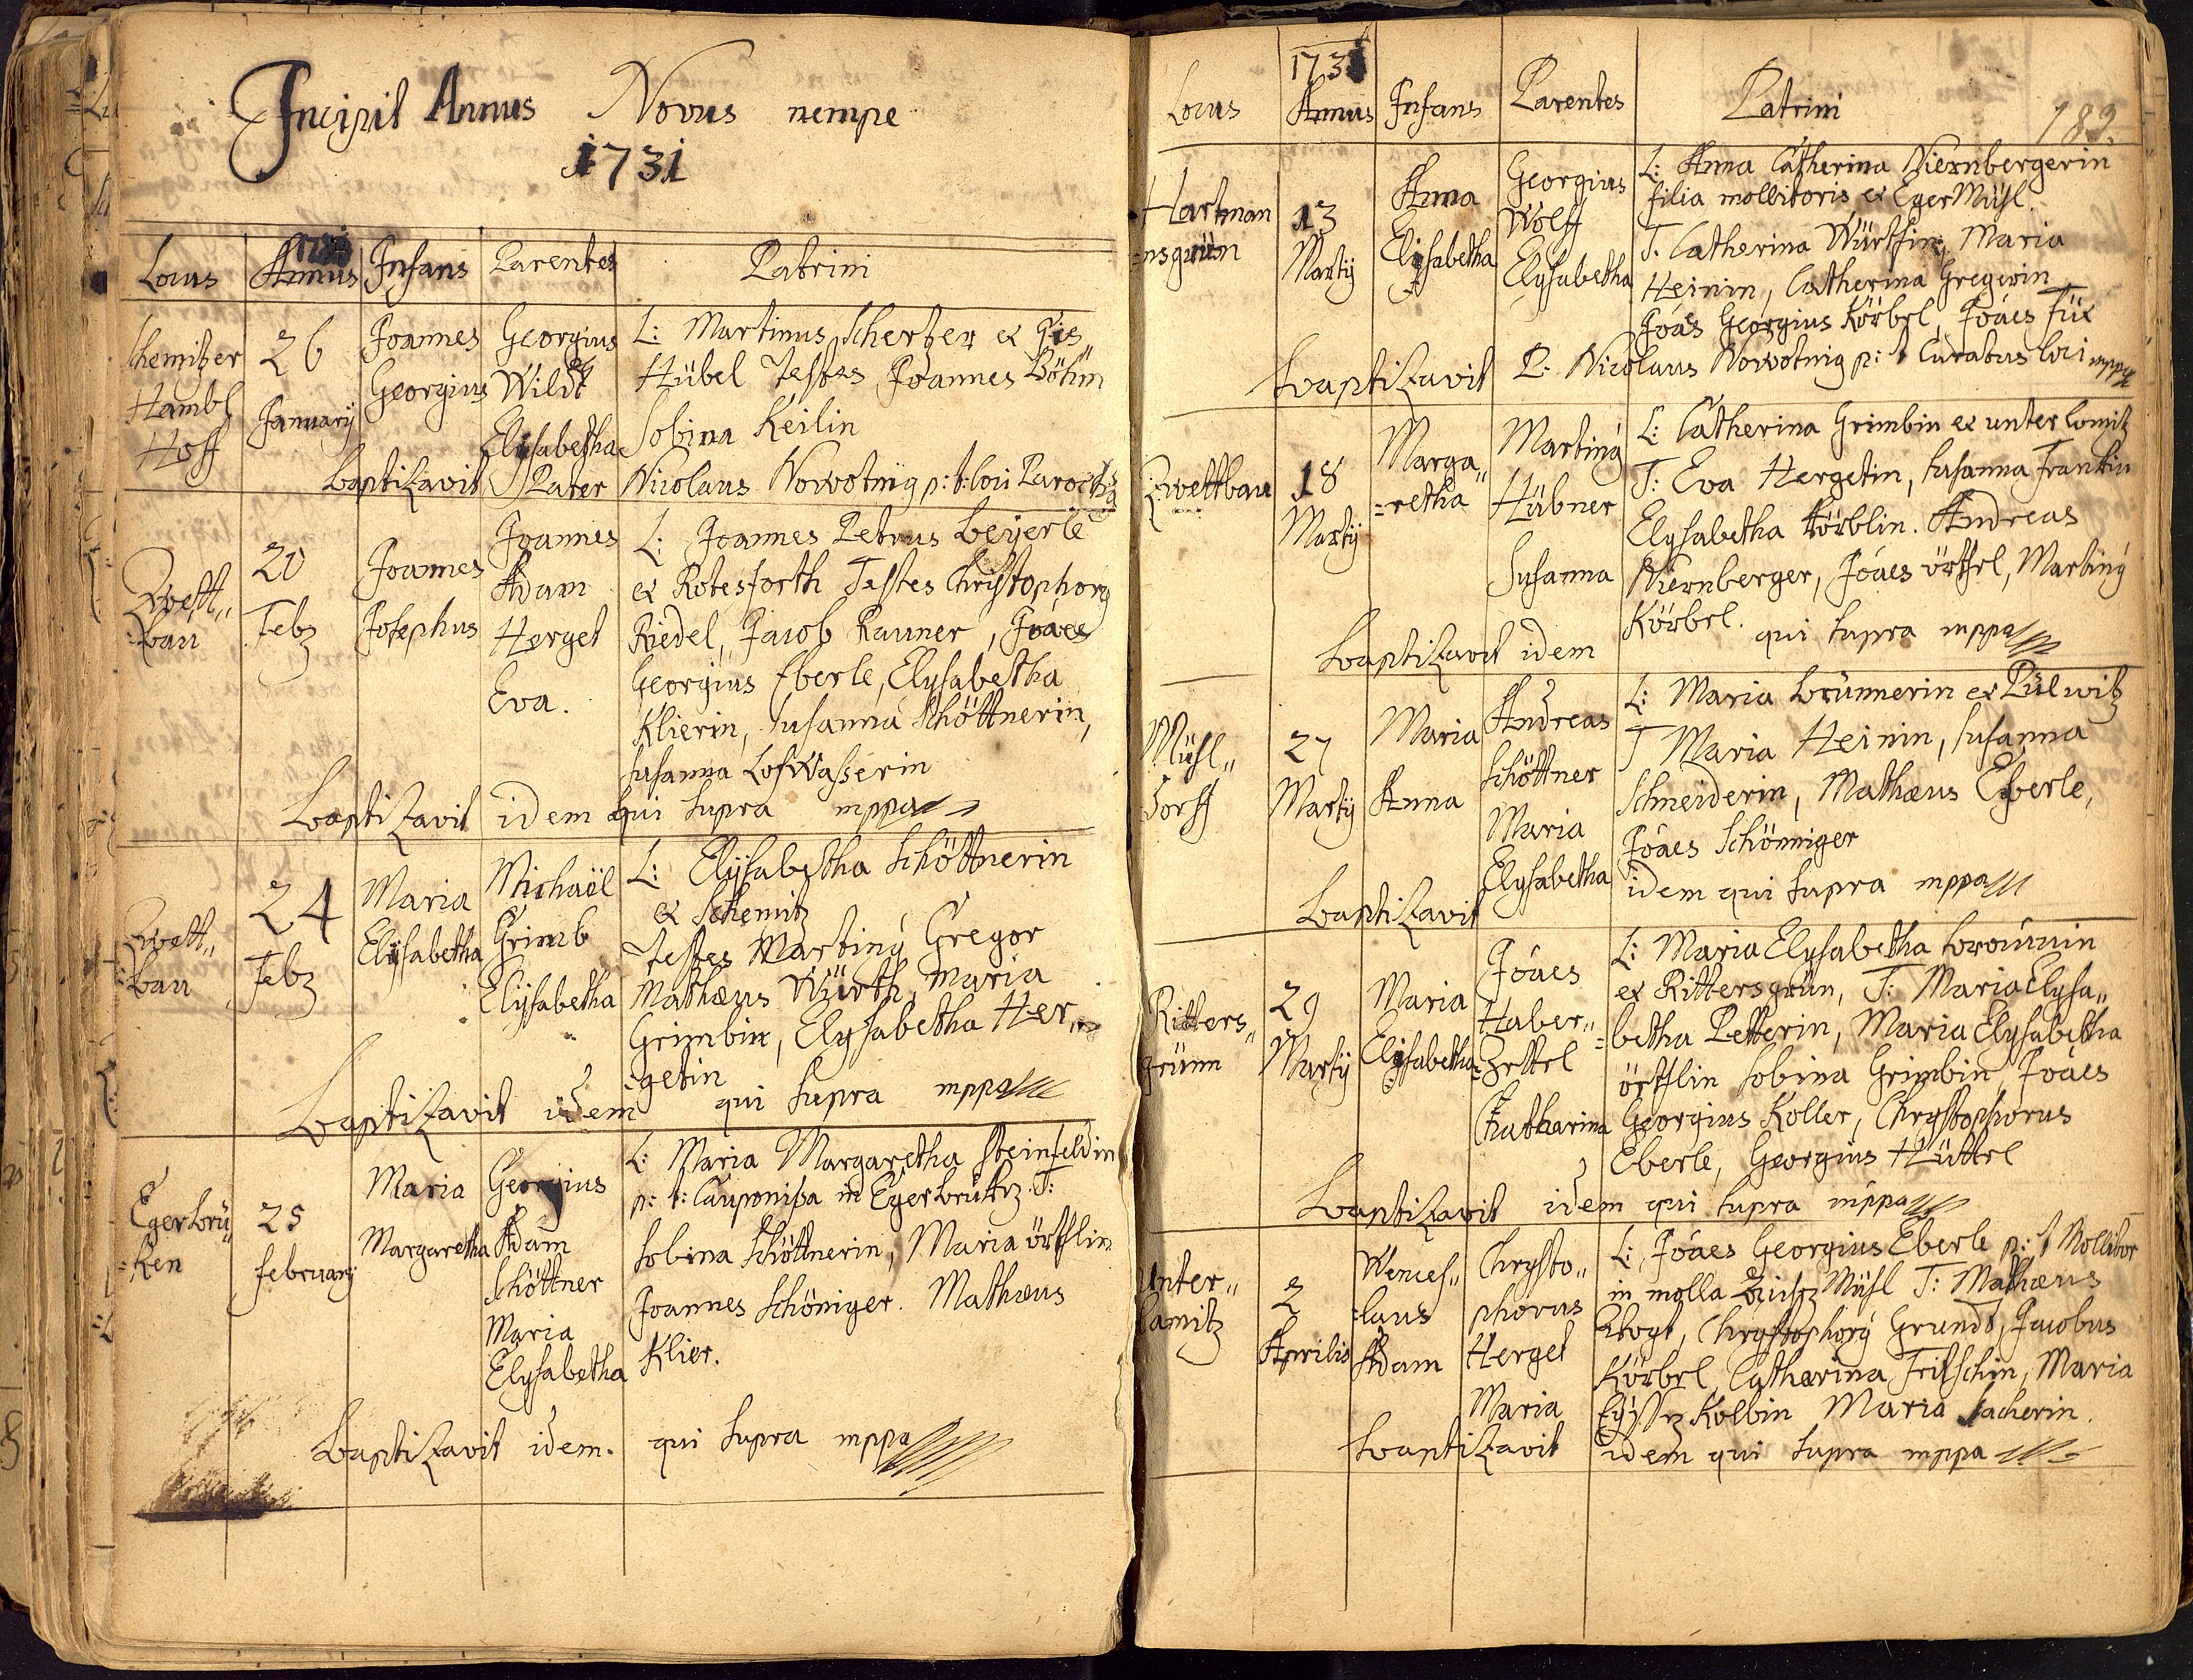 Incipit Annus Novus nempe
1731
Locus Annus Infans Parentes Patrini
Schemitzer
Hambl
Hoff
26
January
Joannes
Georgius
Georgius
Wildt
Elisabetha
L: Martinus Scherber ex Gis
Hübel Testes Joannes Böhm
Sobina Keilin
baptizavit Pater Nicolaus Nowotnig p: t: loci Parochus
Zwett„
=bau
20
Febr
Joannes
Josephus
Joannes
Adam
Herget
Eva.
L: Joannes Petrus beyerle
ex Rotesforth Testes Christophorg
Riedel, Jacob Rauner, Joaes
Georgius Eberle, Elysabetha
Klierin, Susanna Schöttnerin,
Susanna Loswasserin
baptizavit idem qui supra mppa
Zwett„
=bau
24
Febr
Maria
Elisabetha
Michaël
Grimb
Elysabetha
L: Elysabetha Schöttnerin
ex Schemitz
Testes Martinġ Gregor
Mathæus Würth, Maria
Grimbin, Elysabetha Her„
=getin
baptizavit idem qui supra mppa
Egerbrü„
=ken
25
February
Maria
Margaretha
Georgius
Adam
Schöttner
Maria
Elysabetha
L: Maria Margaretha Steinfeldin
p: t: Cauponissa in Egerbrükn. T:
Sobina Schöttnerin, Maria örtlin
Joannes Schöniger. Mathæus
Klier.
baptizavit idem. qui supra mppa
1731
Locus Annus Infans Parentes Patrini
189.
Hartman
=nsgrün
13
Martij
Anna
Elisabetha
Georgius
Wolff
Elysabetha
L: Anna Catherina Niernbergerin
filia mollitoris ex Eger Mühl.
T. Catherina Würthin, Maria
Heinin, Catherina Gregerin
Joaes Georgius Körbel, Joaes Füx
baptizavit P. Nicolaus Nowotnig p: t Curatus loci mppa
Zwettbau
18
Martij
Marga„
=retha
Martinġ
Hübner
Susanna
L: Catherina Grimbin ex unter lomitz
T: Eva Hergetin, Susanna Frankin
Elysabetha Körblin. Andreas
Niernberger, Joaes örthel, Martinġ
Körbel.
baptizavit idem qui supra mppa
Mühl„
dorff
27
Martij
Maria
Anna
Andreas
Schöttner
Maria
Elysabetha
L: Maria brünnerin ex Pülwitz
T Maria Heinin, Susanna
Schneiderin, Mathæus Eberle,
Joaes Schönniger
baptizavit idem qui supra mppa
Ritters„
grünn
29
Martij
Maria
Elisabetha
Joaes
Haber„
=Zettel
Chatharina
L: Maria Elysabetha
ex Rittersgrün, T: Maria Elysa„
=betha Petterin, Maria Elysabetha
örtlin Sobina Grimbin, Joaes
Georgius Koller, Chrystophorus
Eberle, Georgius Hüttel
baptizavit idem qui supra mppa
Unter„
Lamitz
2
Aprilis
Wences„
=laus
Adam
Chrysto„
phorus
Herget
Maria
L: Joaes Georgius Eberle p: t Mollitor
in molla Mühl T: Mathæus
Vogt, Chrystophorġ Grundt, Jacobus
Körbel, Catharina Fritschin, Maria
Kolbin Maria Sacherin.
baptizavit idem qui supra mppa